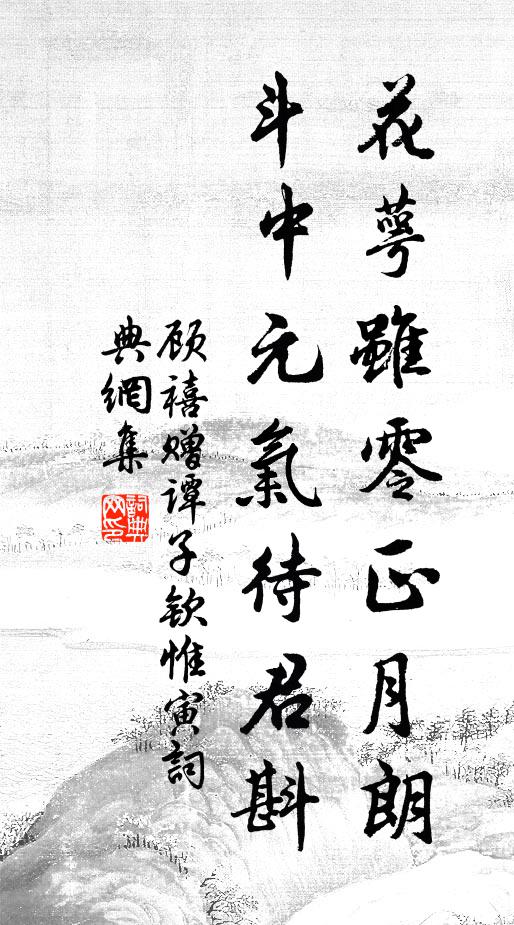 花萼雖零正月朗
斗中元氣待君斟
顾禧赠谭子钦惟寅詞
典網集
詞典
网印